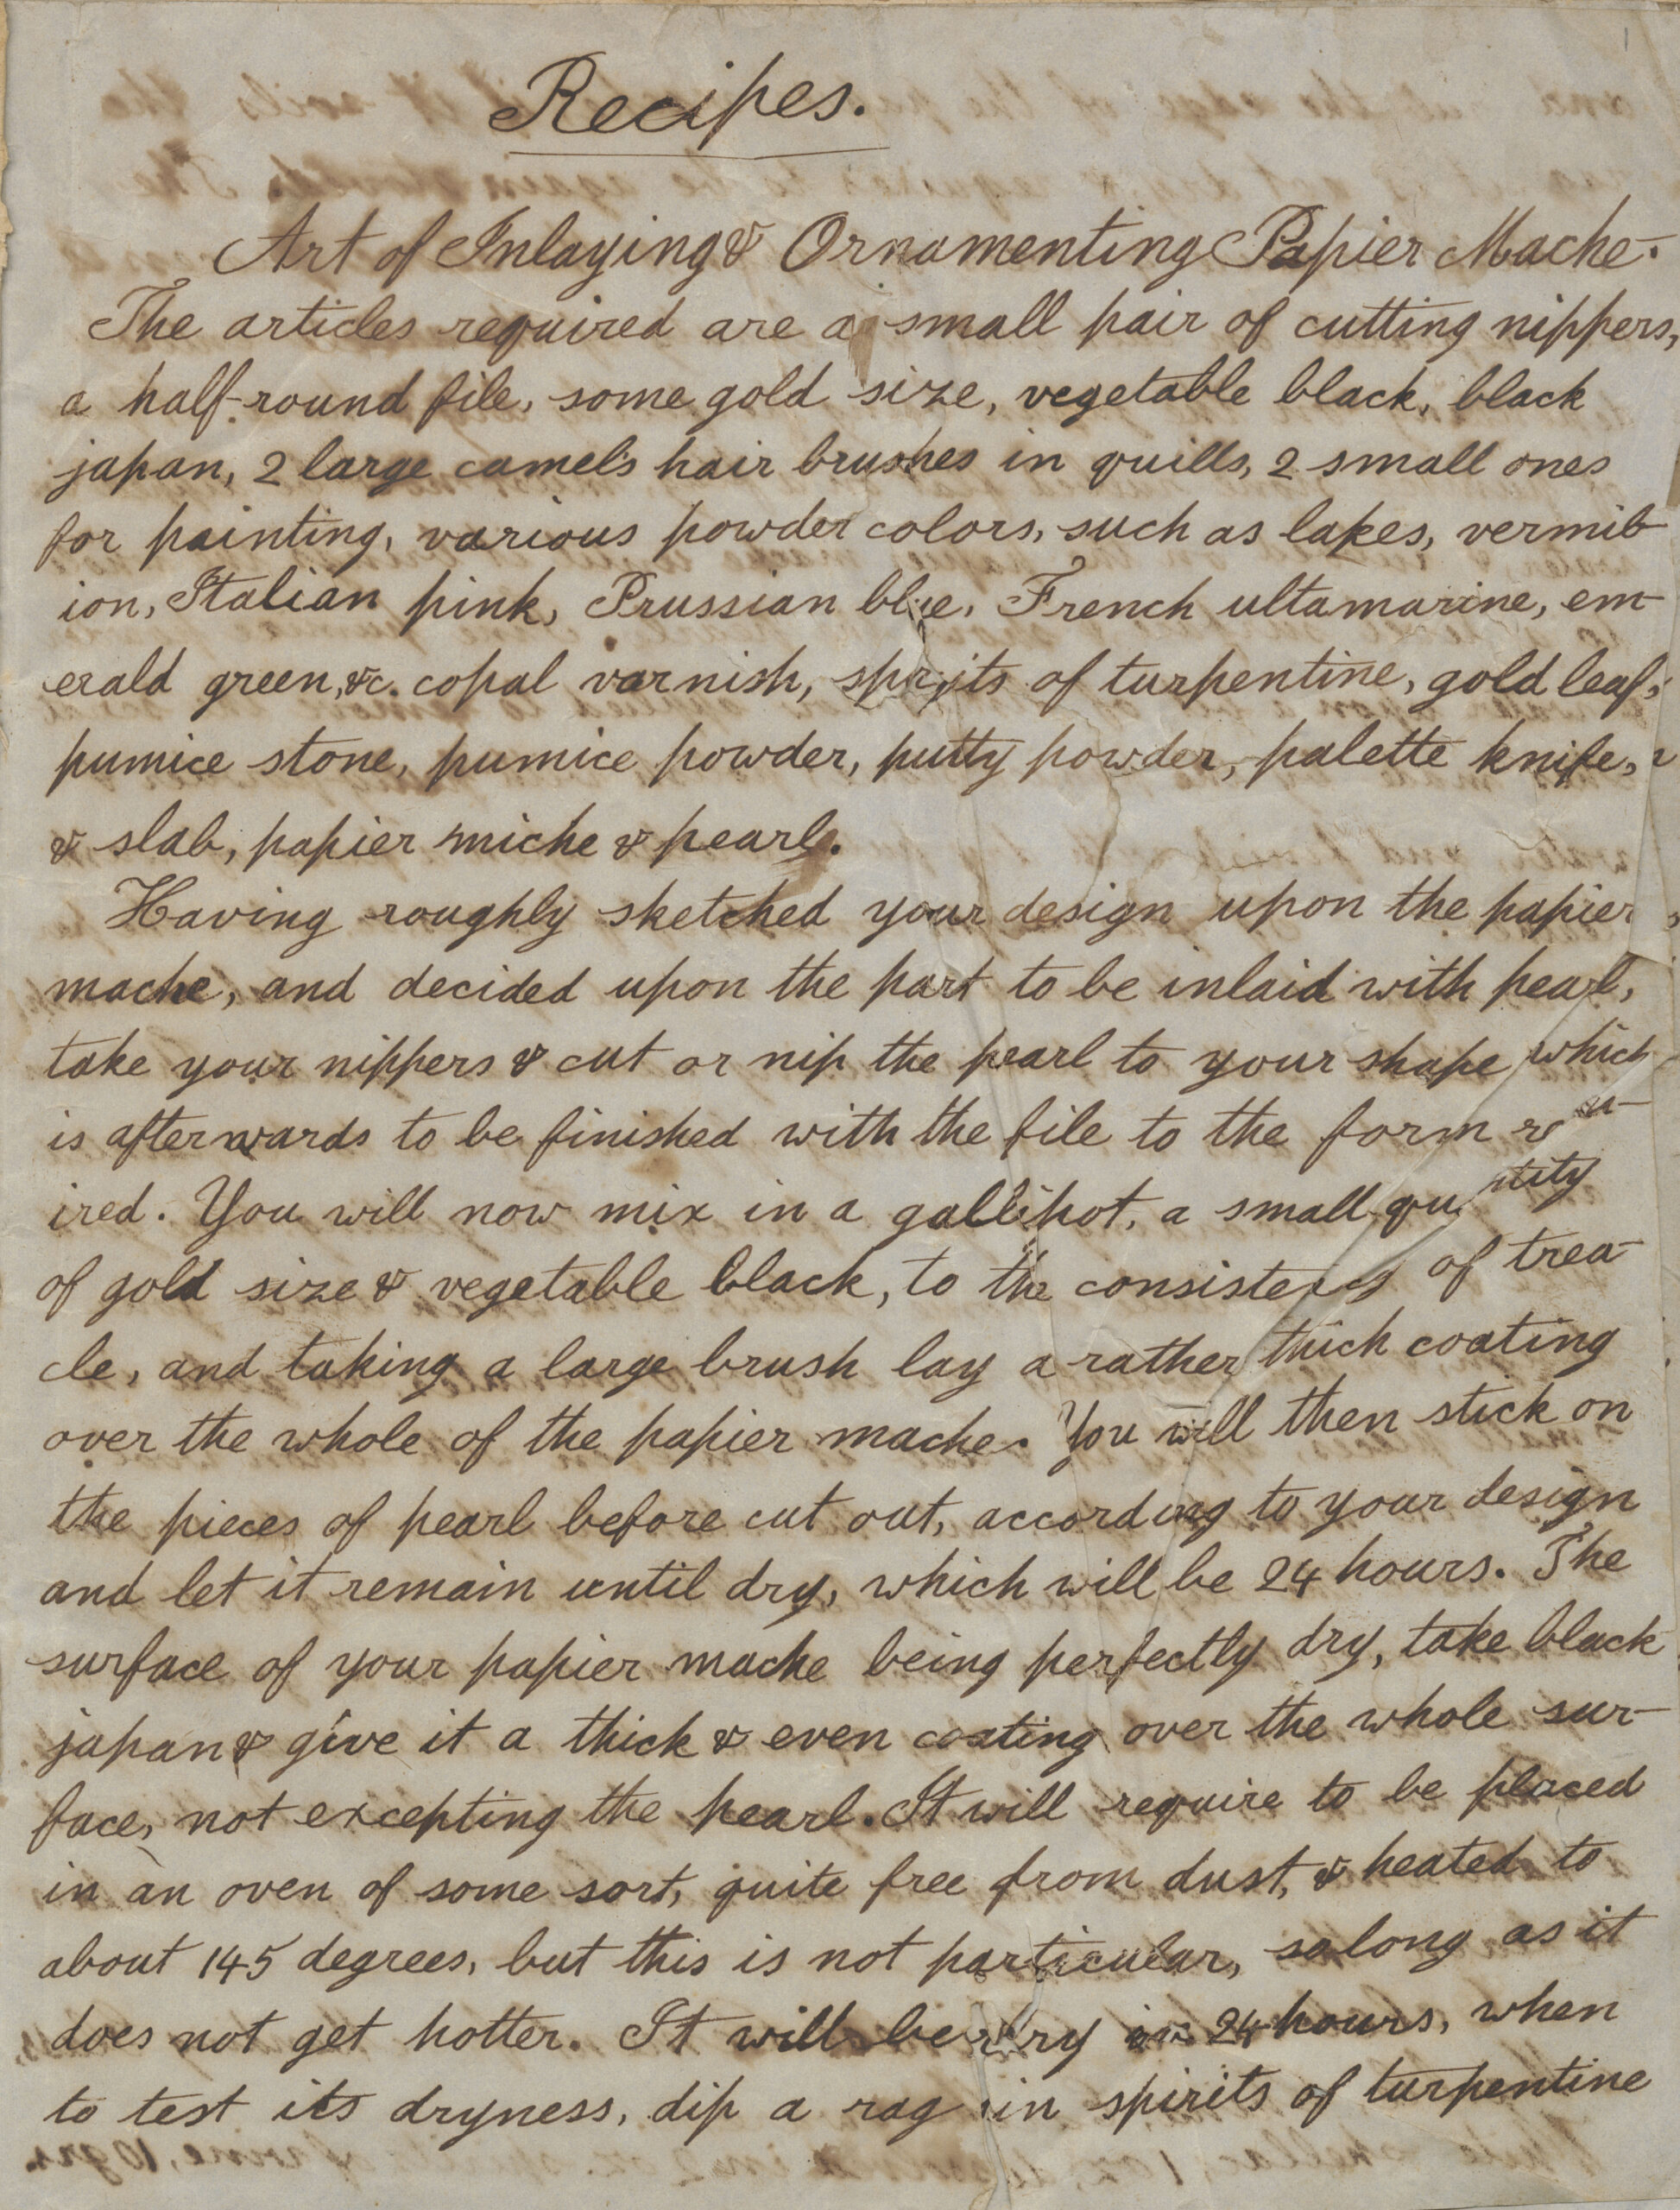 Recipes.
Art of Inlaying & Ornamenting Papier Mache.
The articles required are a small pair of cutting nippers,
a half-round file, some gold size, vegetable black, black
japan, 2 large camels hair brushes in quills, 2 small ones
for painting, various powder colors, such as lakes, vermil-
ion, Italian pink, Prussian blue, French ultamarine, em-
erald green, &c. copal varnish, spirits of turpentine, gold leaf,
pumice stone, pumice powder, putty powder, palette knife,
& slab, papier miche & pearl.
Having roughly sketched your design upon the papier
mache, and decided upon the part to be inlaid with pearl,
take your nippers & cut or nip the pearl to your shape which
is afterwards to be finished with the file to the form
ired. You will now mix in a gallipot, a small quantity
of gold size & vegetable black, to the consistency of trea-
cle, and taking a large brush lay a rather thick coating
over the whole of the papier mache. You will then stick on
the pieces of pearl before cut out, according to your design
and let it remain until dry, which will be 24 hours. The
surface of your papier mache being perfectly dry, take black
japan & give it a thick & even coating over the whole sur-
face, not excepting the pearl. It will require to be placed
in an oven of some sort, quite free from dust, & heated to
about 145 degrees, but this is not particular, so long as it
does not get hotter. It will be dry in 24 hours, when
to test its dryness, dip a rag in spirits of turpentine